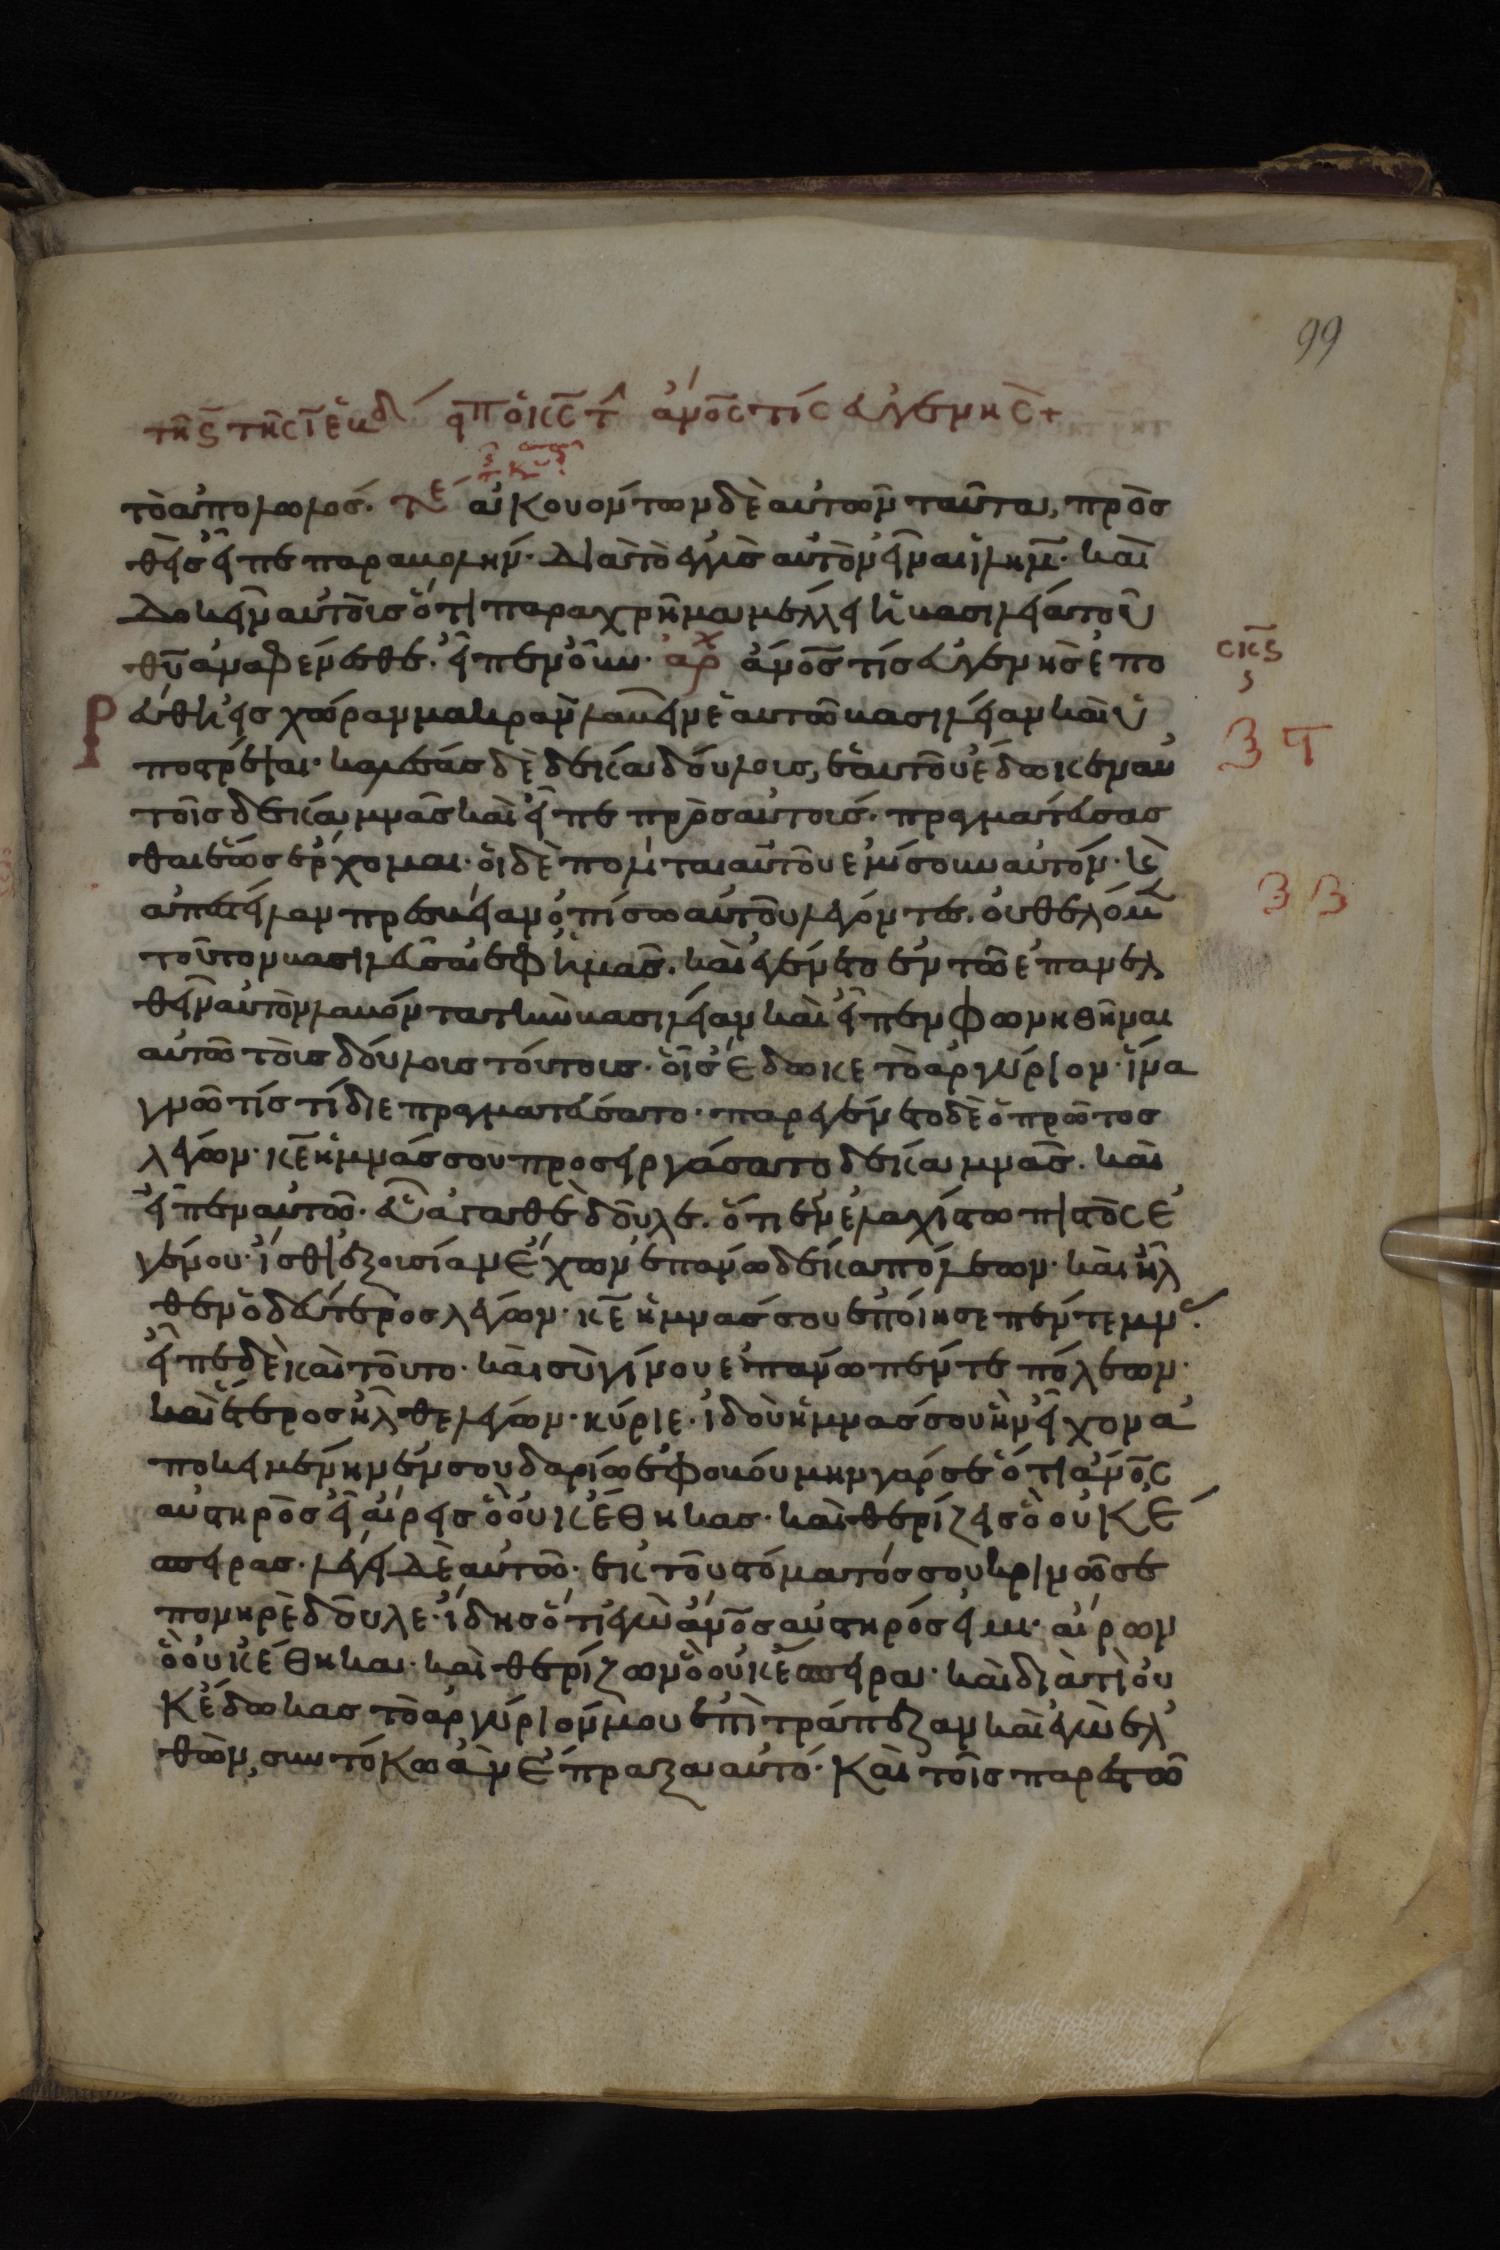 99
τῆς ϛ τῆς ιε ἑβδ εἶπ ὁ κς τ ἄνος τίς εὐγενὴς +
τὸ ἀπολωλός. τε ἀκουόντων δὲ αὐτῶν ταῦτα, προσ
θεὶς εἶπε παραβολήν. διὰ τὸ ἐγγὺς αὐτὸν εἶναι ιλημ. καὶ
δοκεῖν αὐτοῖς ὅτι παραχρῆμα μέλλει ἡ βασιλεία τοῦ
θυ ἀναφαίνεσθαι. εἶπεν οὖν. ἀρχ ἄνος τίς εὐγενὴς ἐπο
ρεύθη εἰς χώραν μακρὰν λαβεῖν ἑαυτῶ βασιλείαν καὶ ὑ
ποστρέψαι. καλέσας δὲ δέκα δούλους ἑαυτοῦ ἔδωκεν αὐ
τοῖς δέκα μνᾶς καὶ εἶπε πρὸς αὐτούς. πραγματεύσασ
θαι ἕως ἔρχομαι. οἱ δὲ πολῖται αὐτοῦ ἐμίσουν αὐτόν. κὲ
ἀπέστειλαν πρεσβείαν ὀπίσω αὐτοῦ λέγοντες. οὐ θέλομεν
τοῦτον βασιλεῦσαι ἐφ' ἡμᾶς. καὶ ἐγένετο ἐν τῶ ἐπανελ
θεῖν αὐτὸν λαβόντα τὴν βασιλείαν καὶ εἶπεν φωνηθῆναι
αὐτῶ τοὺς δούλους τούτους. οἷς ἔδωκε τὸ ἀργύριον. ἵνα
γνῶ τίς τί διεπραγματεύσατο. παρεγένετο δὲ ὁ πρῶτος
λέγων. κε ἡ μνᾶς σου προσειργάσατο δέκα μνᾶς. καὶ
εἶπεν αὐτῶ. εὖ ἀγαθὲ δοῦλε. ὅτι ἐν ἐλαχίστω πιστὸς ἐ
γένου. ἴσθι ἐξουσίαν ἔχων ἐπάνω δέκα πόλεων. καὶ ἦλ
θεν ὁ δεύτερος λέγων. κε ἡ μνᾶς σου ἐποίησε πέντε μν.
εἶπε δὲ καὶ τοῦτο. καὶ σὺ γίνου ἐπάνω πέντε πόλεων.
καὶ ἕτερος ἦλθε λέγων. κύριε. ἰδοὺ ἡ μνᾶς σου ἣν εἶχον ἀ
ποκειμένην ἐν σουδαρίω ἐφοβούμην γάρ σε ὅτι ἄνος
αὐστηρὸς εἶ αἴρεις ὃ οὐκ ἔθηκας. καὶ θερίζεις ὃ οὐκ ἔ
σπειρας. λέγει δὲ αὐτῶ. ἐκ τοῦ στόματός σου κρίνω σε
πονηρὲ δοῦλε. ἴδης ὅτι ἐγὼ ἄνος αὐστηρός εἰμι. αἴρων
ὃ οὐκ ἔθηκα. καὶ θερίζων ὃ οὐκ ἔσπειρα. καὶ διὰ τί οὐ
κ ἔδωκας τὸ ἀργύριόν μου ἐπὶ τράπεζαν καὶ ἐγὼ ἐλ
θὼν, σὺν τόκω ἂν ἔπραξα αὐτό. καὶ τοῖς παρεστῶ
σκϛ